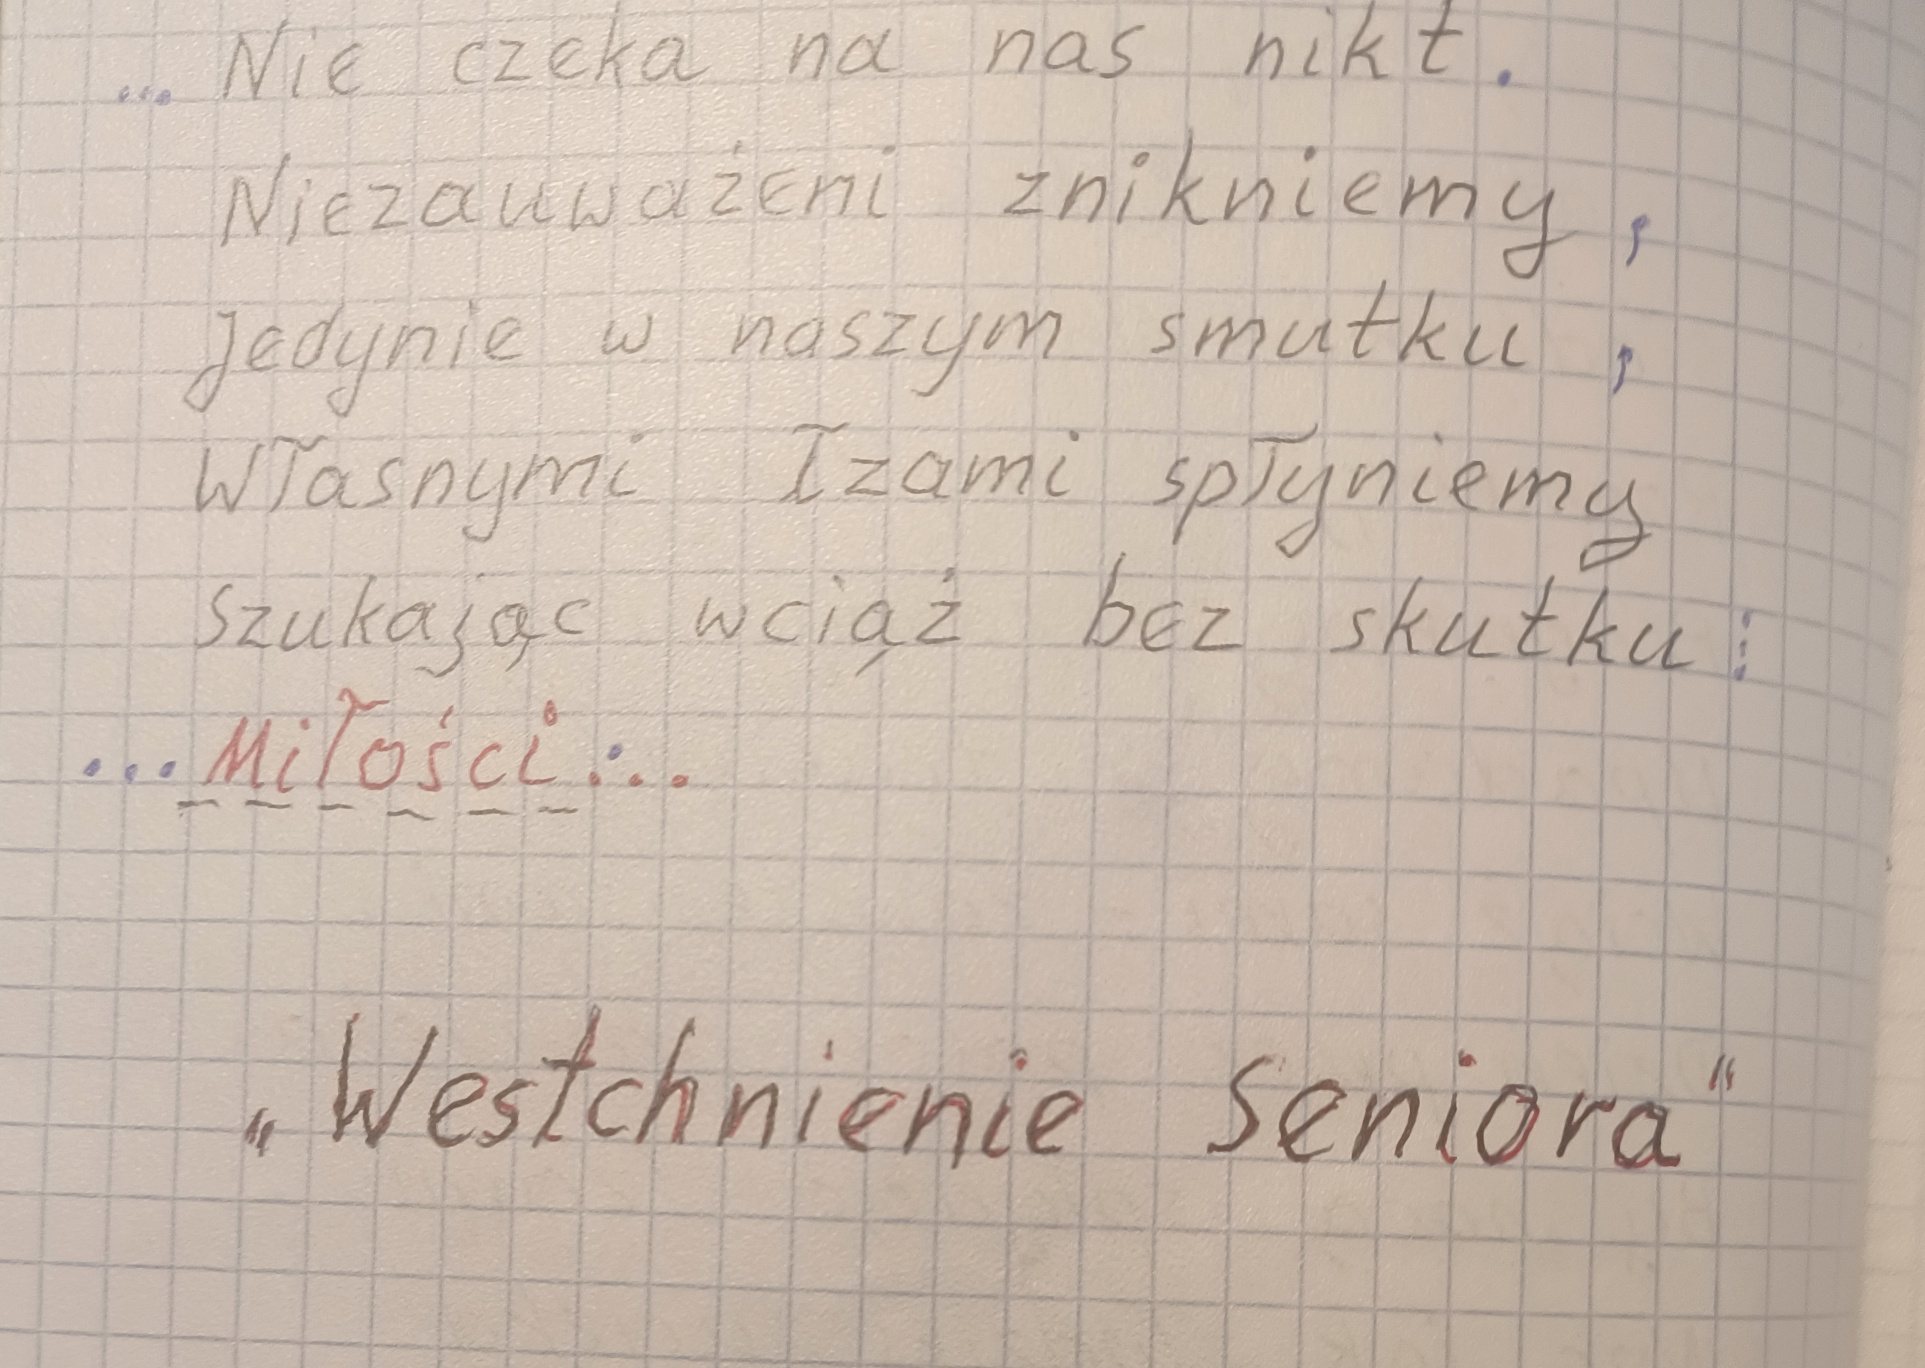 ... Nie czeka na nas nikt.
Niezauważeni znikniemy,
jedynie w naszym smutku,
Własnymi łzami spłyniemy
szukając wciąż bez skutku:
...Miłości:..
„Westchnienie Seniora"